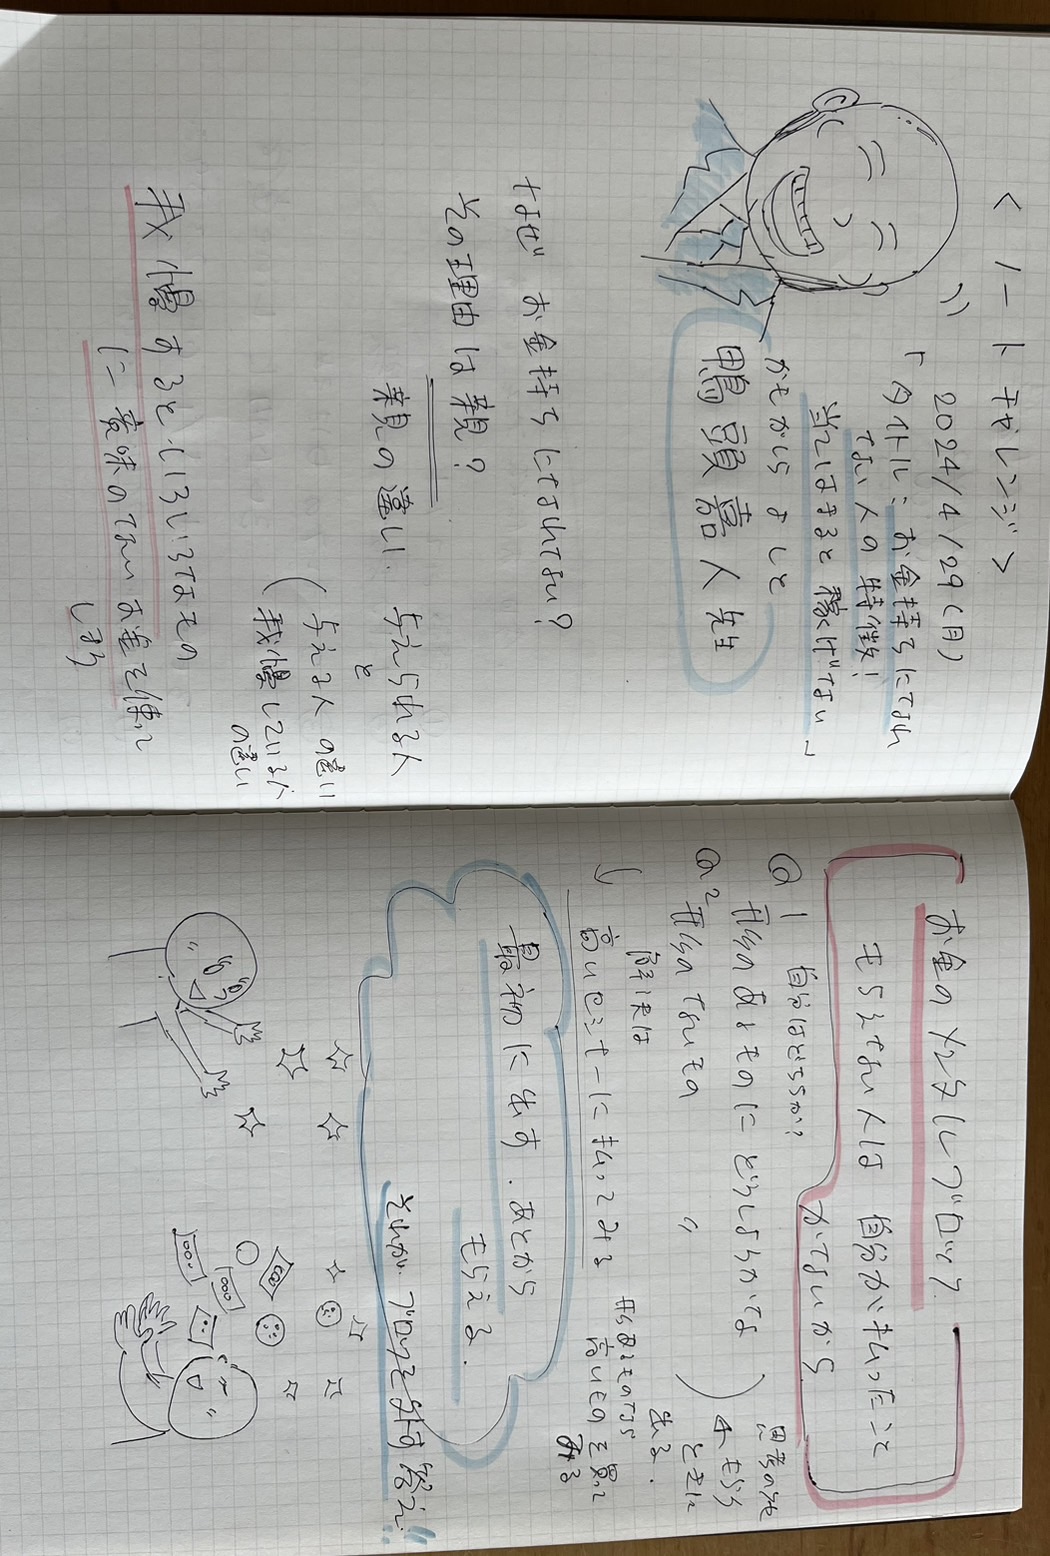 <ノートチャレンジ>
2024/4/29(月)
「タイトル:お金持ちになれ
ない人の特徴!
当てはまると稼げない」
かもがしら よしと
鴨頭嘉人先生
なぜ お金持ちになれない?
その理由は親?
親の違い. 与えられる人
と
与える人の違い
我慢している人
の違い
我慢するといろいろなもの
に意味のないお金を使って
しまう
お金のメンタルブロック
もらえない人は 自分が払ったこと
がないから
@1 自分はどちらか?
形のあるものにどうしようかな
@2 形のないもの 〃
思考の
もらう
ときに
解決は
高いセミナーに払ってみる
形あるものなら
高いものを買って
みる
最初に出す.あとから
もらえる.
それが、ブロックを外す答え!!
1000
1000